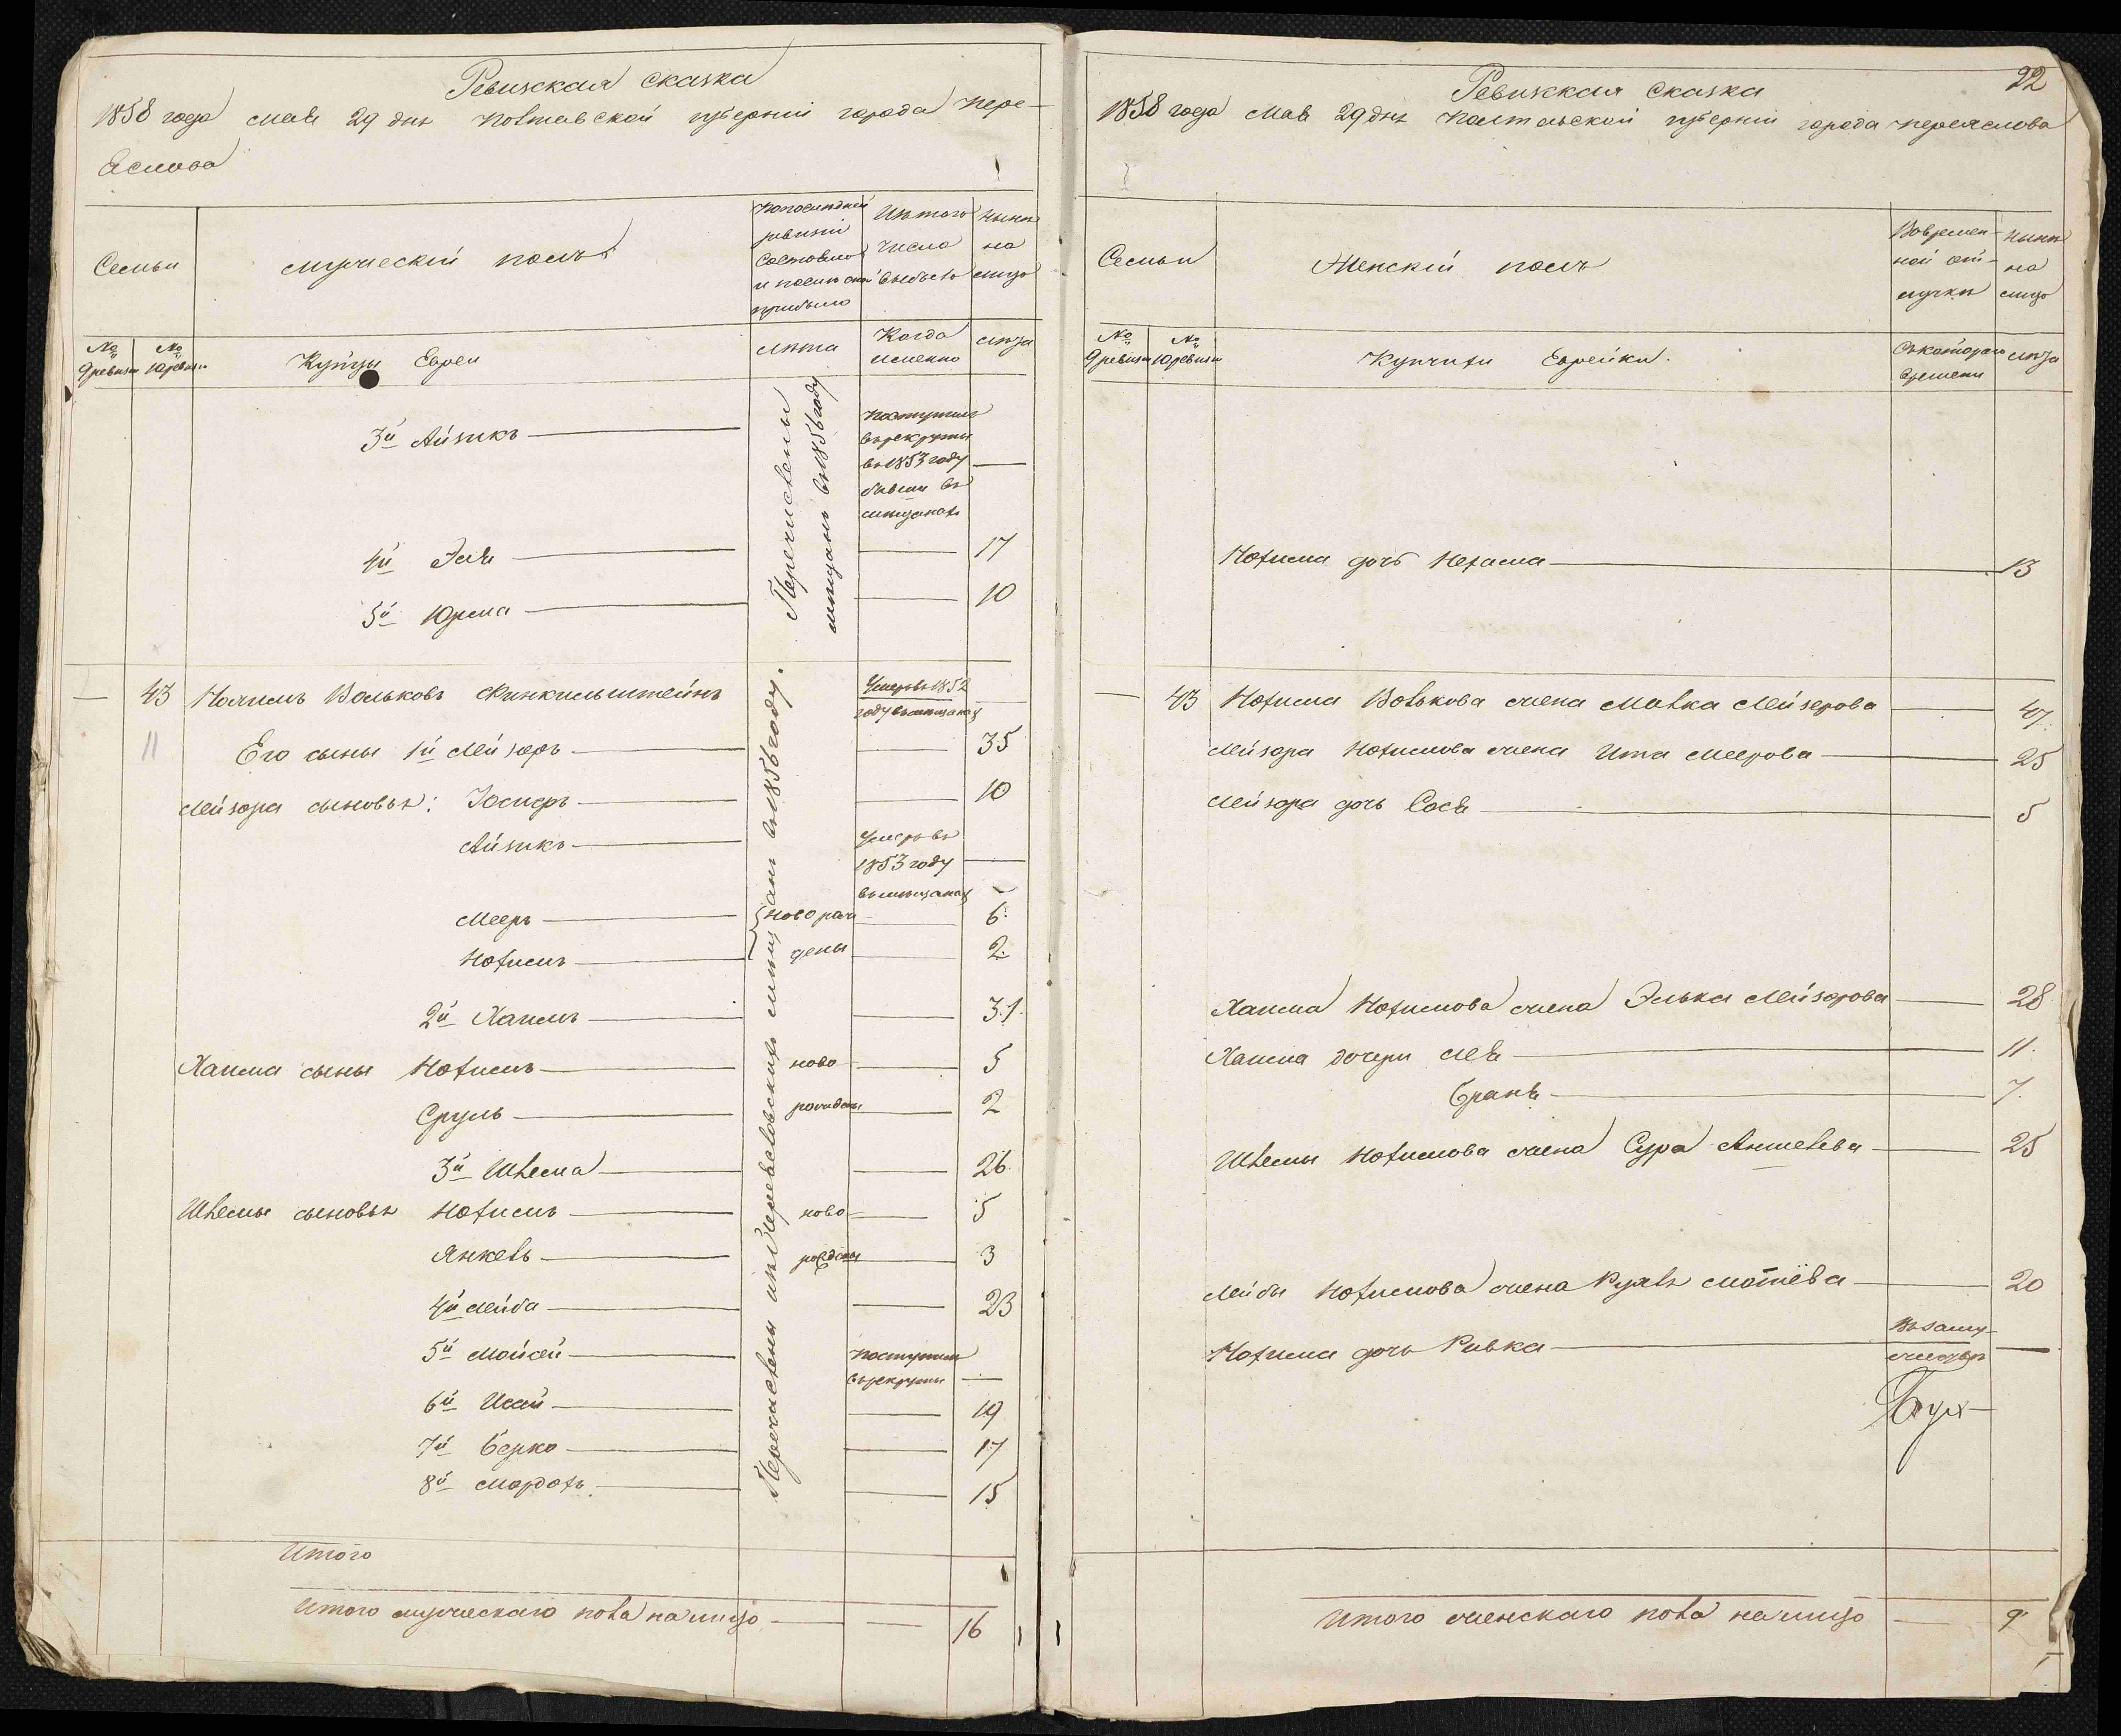 Ревизская сказка
1858 года мая 29 дня Полтавской губерніи города Пере-
яслова
Семьи
мужескій полъ
По последней ревизіи состояло и после оной прибыло
Изъ того числа выбыло
Ныне на лицо
№ 9 ревизи
№ 10 ревизи
Купцы Евреи
лета
Когда именно
лета
3й Айзикъ
Поступилъ въ рекруты въ 1853 году бывши въ мещанахъ
4й Эля 17
5й Юрма 10
Перечислены въ мещане въ 1856 году
— 43 Нахимъ Вольковъ Финкильштейнъ
Умеръ въ 1852 году въ мещанах
11
Его сыны 1й Лейзеръ 35
Лейзора сыновья: Іосифъ 10
Айзикъ Умеръ въ 1853 году въ мещанах
Мееръ новорож 6
Нохимъ дены 2
2й Хаимъ 31
Хаима сыны Нохимъ ново 5
Сруль рождены 2
3й Шлема 26
Шлемы сыновья Нохимъ ново 5
Янкель рождены 3
4й Лейба 23
5й Мойсей Поступилъ въ рекруты
6й Исай 19
7й Берко 17
8й Мордохъ 15
Перечислены изъ Переясловскихъ мещанъ въ 1856 году.
Итого
Итого мужескаго пола на лицо 16
22
Ревизкая сказка
1858 года мая 29 дня Полтавской губерніи города Переяслова
Семьи
Женскій полъ
Во времен-ной от-лучке
Ныне на лицо
№ 9 ревизи
№ 10 ревизи
Купчихи Еврейки.
Съ котораго времени
лета
Нохима дочь Нехама 13
— 43 Нохима Волькова жена Малка Лейзерова 47
Лейзора Нохимова жена Ита Меерова 25
Лейзора дочь Сося 5
Хаима Нохимова жена Элька Лейзорова 28
Хаима дочери Лея 11
Браня 7
Шлемы Нохимова жена Сура Аншелева 25
Лейбы Нохимова жена Рухля Мотлёва 20
Нохима дочь Ривка
Въ замужестве
Итого женскаго пола на лицо 9